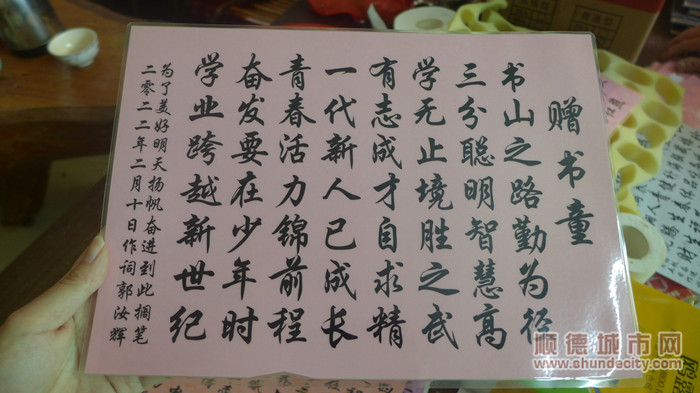 赠书童
书山之路勤为径
三分聪明智慧高
学无止境胜之武
有志成才自求精
一代新人已成长
青春活力锦前程
奋发要在少年时
学业跨越新世纪
为了美好明天扬帆奋进到此搁笔
二零二二年二月十日作词郭汝辉
顺德城市网
www.shundecity.com